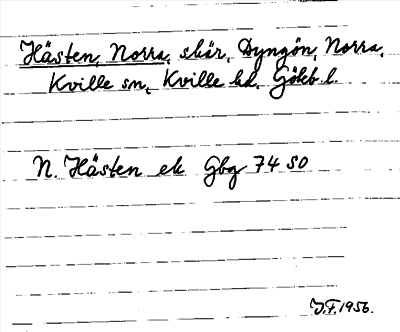 Hästen, Norra, skär, Dyngön, Norra,
Kville sn, Kville hd, Göteb. l.
N. Hästen ek Gbg 74 SO
J.F. 1956.